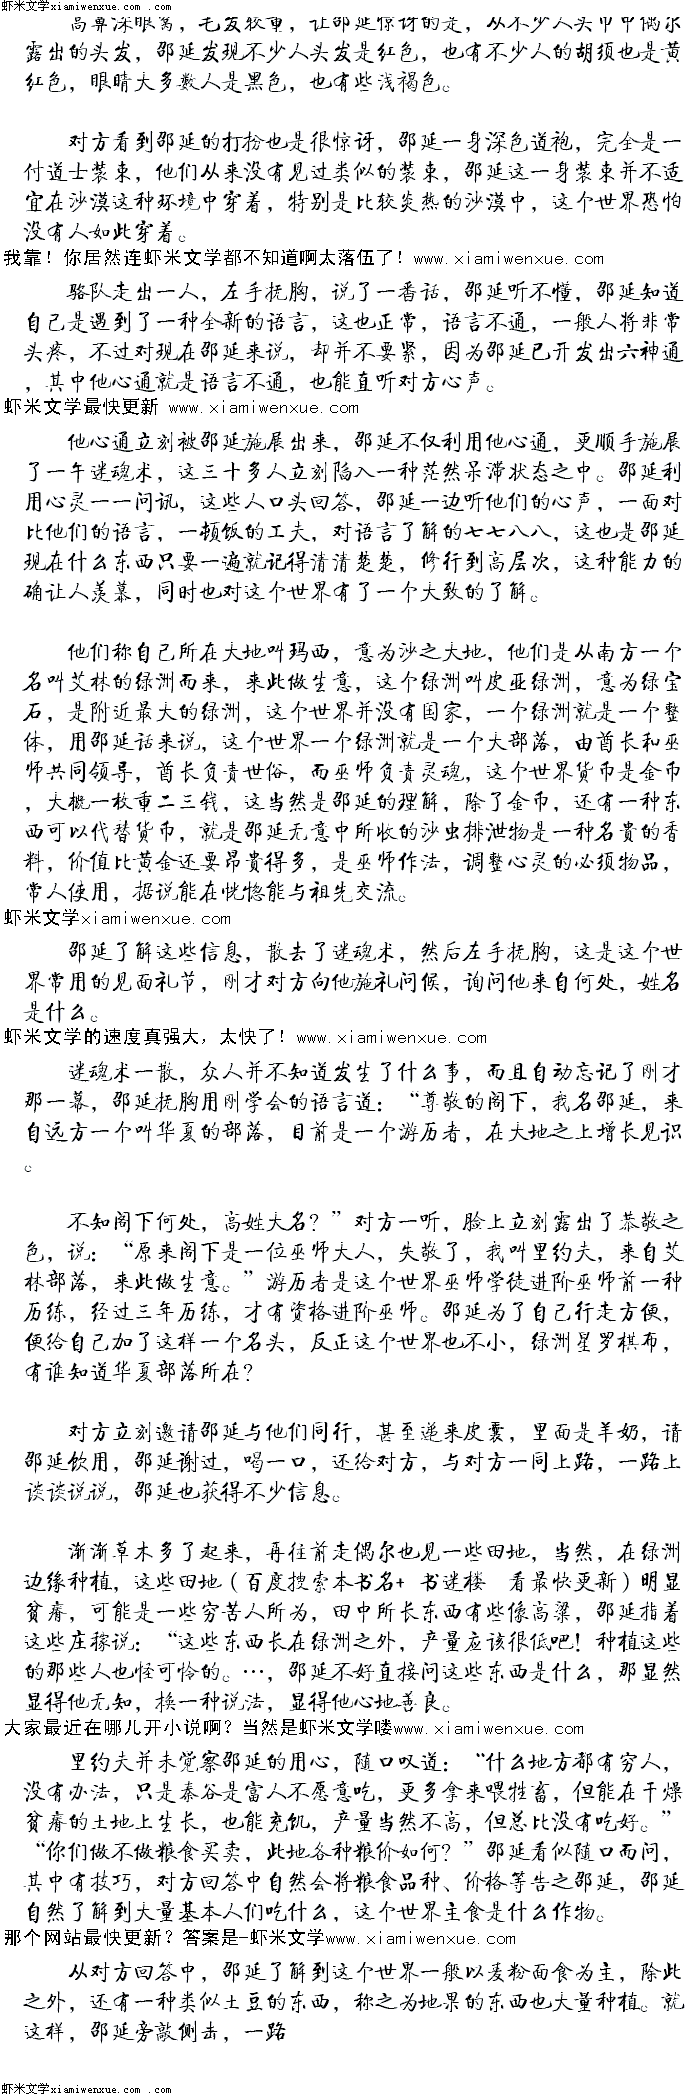 虾米文学xiamiwenxue.com .com
高鼻深眼窝，毛发较重，让邵延惊讶的是，从不少人头巾中偶尔
露出的头发，邵延发现不少人头发是红色，也有不少人的胡须也是黄
红色，眼睛大多数人是黑色，也有些浅褐色。
对方看到邵延的打扮也是很惊讶，邵延一身深色道袍，完全是一
付道士装束，他们从来没有见过类似的装束，邵延这一身装束并不适
宜在沙漠这种环境中穿着，特别是比较炎热的沙漠中，这个世界恐怕
没有人如此穿着。
我靠！你居然连虾米文学都不知道啊太落伍了！www.xiamiwenxue.com
骆队走出一人，左手抚胸，说了一番话，邵延听不懂，邵延知道
自己是遇到了一种全新的语言，这也正常，语言不通，一般人将非常
头疼，不过对现在邵延来说，却并不要紧，因为邵延已开发出六神通
，其中他心通就是语言不通，也能直听对方心声。
虾米文学最快更新 www.xiamiwenxue.com
他心通立刻被邵延施展出来，邵延不仅利用他心通，更顺手施展
了一午迷魂术，这三十多人立刻陷入一种茫然呆滞状态之中。邵延利
用心灵一一问讯，这些人口头回答，邵延一边听他们的心声，一面对
比他们的语言，一顿饭的工夫，对语言了解的七七八八，这也是邵延
现在什么东西只要一遍就记得清清楚楚，修行到高层次，这种能力的
确让人羡慕，同时也对这个世界有了一个大致的了解。
他们称自己所在大地叫玛西，意为沙之大地，他们是从南方一个
名叫艾林的绿洲而来，来此做生意，这个绿洲叫皮亚绿洲，意为绿宝
石，是附近最大的绿洲，这个世界并没有国家，一个绿洲就是一个整
体，用邵延话来说，这个世界一个绿洲就是一个大部落，由酋长和巫
师共同领导，酋长负责世俗，而巫师负责灵魂，这个世界货币是金币
，大概一枚重二三钱，这当然是邵延的理解，除了金币，还有一种东
西可以代替货币，就是邵延无意中所收的沙虫排泄物是一种名贵的香
料，价值比黄金还要昂贵得多，是巫师作法，调整心灵的必须物品，
常人使用，据说能在恍惚能与祖先交流。
虾米文学xiamiwenxue.com
邵延了解这些信息，散去了迷魂术，然后左手抚胸，这是这个世
界常用的见面礼节，刚才对方向他施礼问候，询问他来自何处，姓名
是什么。
虾米文学的速度真强大，太快了！www.xiamiwenxue.com
迷魂术一散，众人并不知道发生了什么事，而且自动忘记了刚才
那一幕，邵延抚胸用刚学会的语言道：“尊敬的阁下，我名邵延，来
自远方一个叫华夏的部落，目前是一个游历者，在大地之上增长见识
。
不知阁下何处，高姓大名？”对方一听，脸上立刻露出了恭敬之
色，说：“原来阁下是一位巫师大人，失敬了，我叫里约夫，来自艾
林部落，来此做生意。”游历者是这个世界巫师学徒进阶巫师前一种
历练，经过三年历练，才有资格进阶巫师。邵延为了自己行走方便，
便给自己加了这样一个名头，反正这个世界也不小，绿洲星罗棋布，
有谁知道华夏部落所在？
对方立刻邀请邵延与他们同行，甚至递来皮囊，里面是羊奶，请
邵延饮用，邵延谢过，喝一口，还给对方，与对方一同上路，一路上
谈谈说说，邵延也获得不少信息。
渐渐草木多了起来，再往前走偶尔也见一些田地，当然，在绿洲
边缘种植，这些田地（百度搜索本书名+ 书迷楼 看最快更新）明显
贫瘠，可能是一些穷苦人所为，田中所长东西有些像高粱，邵延指着
这些庄稼说：“这些东西长在绿洲之外，产量应该很低吧！种植这些
的那些人也怪可怜的。…，邵延不好直接问这些东西是什么，那显然
显得他无知，换一种说法，显得他心地善良。
大家最近在哪儿开小说啊？当然是虾米文学喽www.xiamiwenxue.com
里约夫并未觉察邵延的用心，随口叹道：“什么地方都有穷人，
没有办法，只是泰谷是富人不愿意吃，更多拿来喂牲畜，但能在干燥
贫瘠的土地上生长，也能充饥，产量当然不高，但总比没有吃好。”
“你们做不做粮食买卖，此地各种粮价如何？”邵延看似随口而问，
其中有技巧，对方回答中自然会将粮食品种、价格等告之邵延，邵延
自然了解到大量基本人们吃什么，这个世界主食是什么作物。
那个网站最快更新？答案是-虾米文学www.xiamiwenxue.com
从对方回答中，邵延了解到这个世界一般以麦粉面食为主，除此
之外，还有一种类似土豆的东西，称之为地果的东西也大量种植。就
这样，邵延旁敲侧击，一路
虾米文学xiamiwenxue.com .com